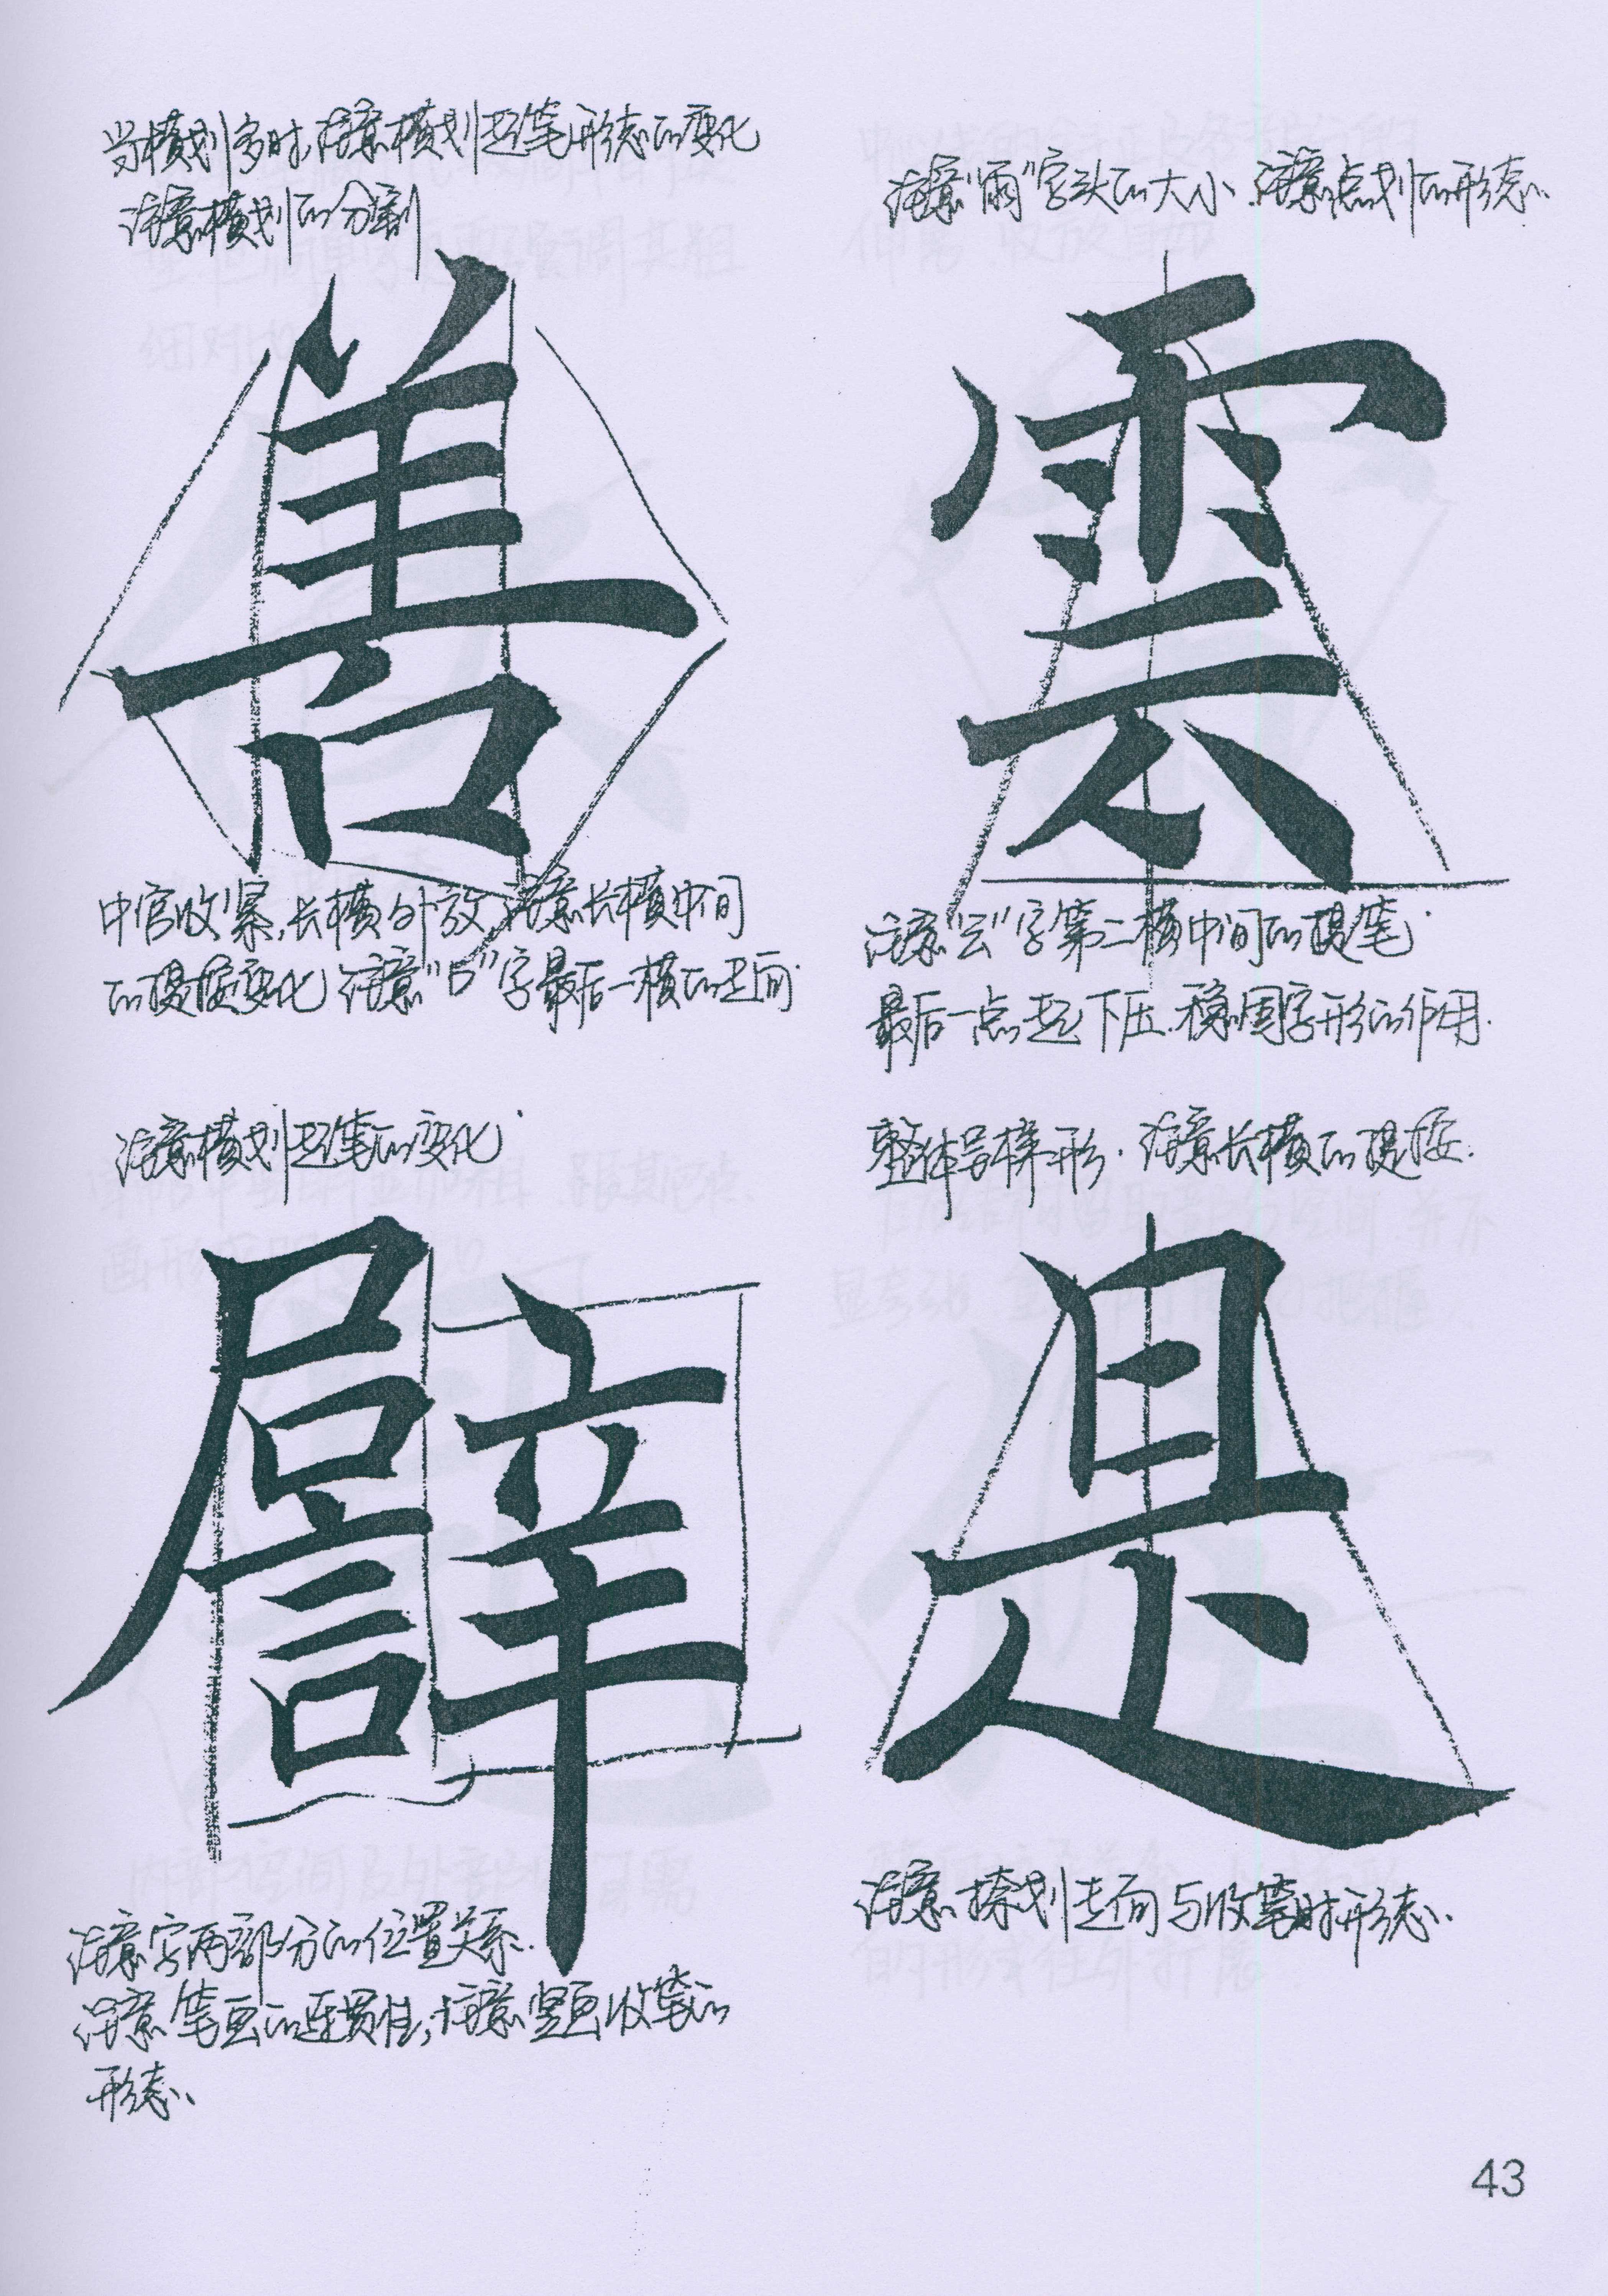 当横划多时,注意横划起笔形态的变化
注意横划的分割
善
中宫收紧,长横外放,注意长横中间
的提按变化 注意"口"字最后一横的走向.
注意"雨"字头的大小.注意点划的形态.
雲
注意"云"字第二横中间的提笔.
最后一点起下压.稳固字形的作用.
注意横划起笔的变化.
譬
注意字两部分的位置关系.
注意笔画的连贯性,注意竖画收笔的
形态.
整体呈梯形.注意长横的提按.
是
注意捺划走向与收笔时形态.
43